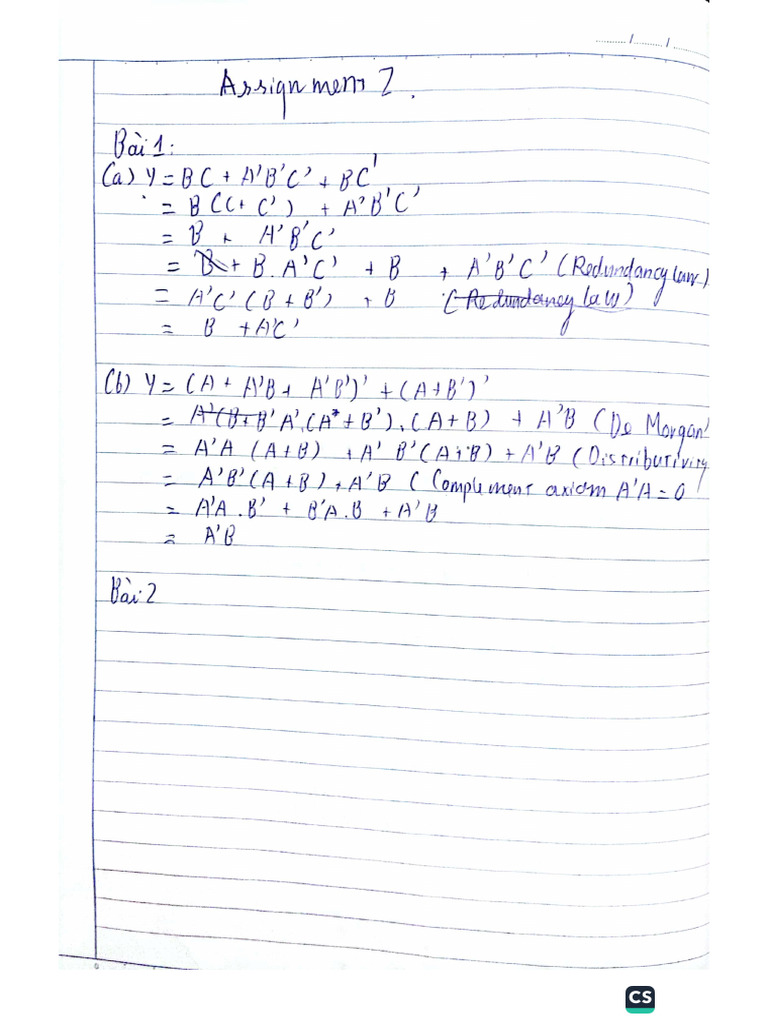 ........./........./......
Assignment 2.
Bài 1:
(a) Y = BC + A'B'C' + BC'
= B(C + C') + A'B'C'
= B + A'B'C'
= B + B.A'C' + B + A'B'C' (Redundancy law)
= A'C'(B + B') + B (Redundancy law)
= B + A'C'
(b) Y = (A + A'B + A'B')' + (A+B')'
= A'(B+B' A'.(A + B').(A+B) + A'B (De Morgan)
= A'A (A+B) + A'B'(A+B) + A'B (Distributivity
= A'B'(A+B) + A'B (Complement axiom A'A = 0
= A'A.B' + B'A.B + A'B
= A'B
Bài 2
CS